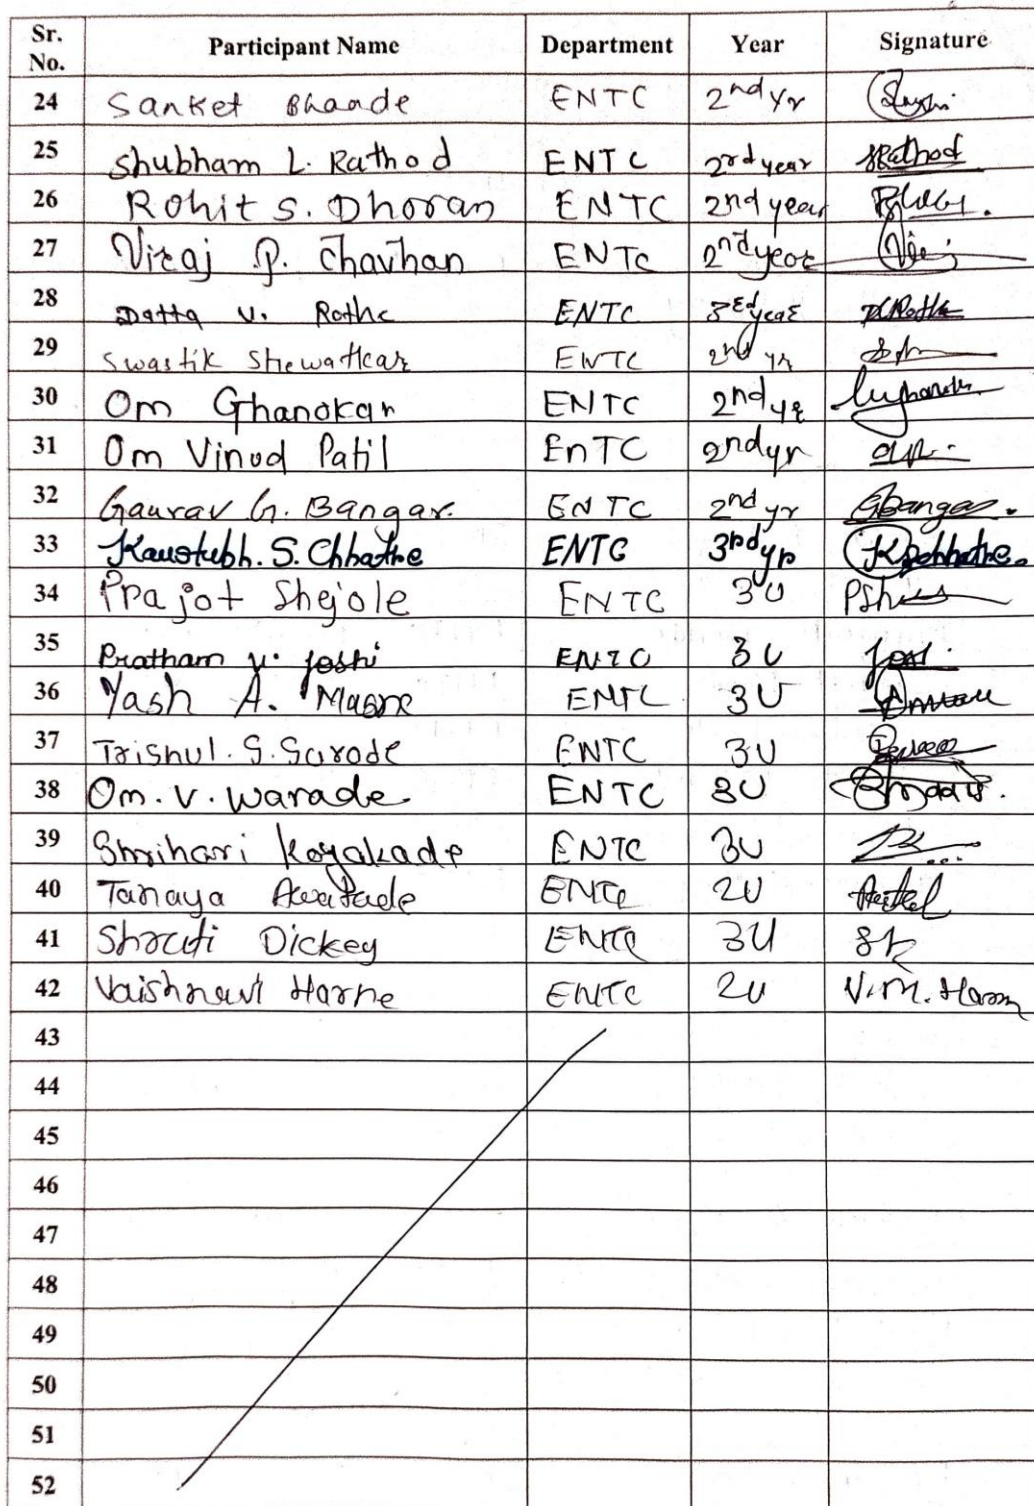 Sr. No. Participant Name Department Year Signature
24 Sanket Bhaade ENTC 2nd Yr
25 Shubham L. Rathod ENTC 2rd year SRathod
26 Rohit S. Dhoran ENTC 2nd year
27 Viraj P. Chavhan ENTC 2nd year
28 Datta V. Rothe ENTC 3rd year
29 Swastik Shewatkar ENTC 2nd yr
30 Om Ghanokar ENTC 2nd yr
31 Om Vinod Patil EnTC 2nd yr
32 Gaurav G. Bangar. ENTC 2nd yr GBangar.
33 Kaustubh. S. Chhatre ENTC 3rd yr
34 Prajot Shejole ENTC 3U
35 Pratham v. Joshi ENTC 3U
36 Yash A. ENTC 3U
37 Trishul. S. Sarode ENTC 3U
38 Om. V. Warade ENTC 3U
39 Shrihari Koyakade ENTC 3U
40 Tanaya ENTC 2U
41 Shruti Dickey ENTC 3U
42 Vaishnavi Harne ENTC 2U
43
44
45
46
47
48
49
50
51
52